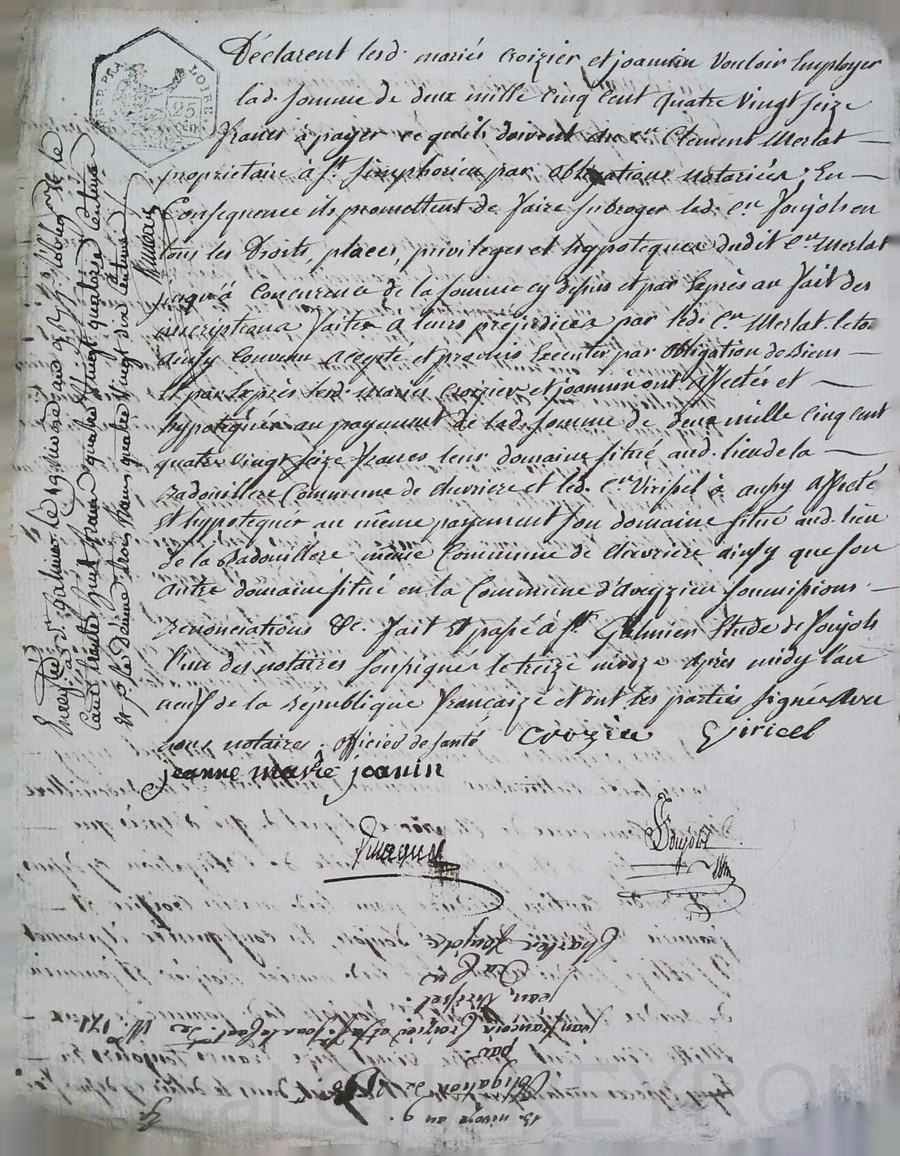 Déclarent lesd. mariés Croizier et joannin Vouloir Employer
lad. somme de deux mille cinq cent quatre vingt seize
francs à payer ce qu'ils doivent au cn. Clement Merlat
propriétaire à St. Simphorien par obligations notariées; En
Consequence ils promettent de faire subroger led. cn. Joujols en
tous les Droits, places, privileges et hypoteques dudit Cn. Merlat
jusqu'à concurence de la somme cy dessus et par Exprès au fait des
inscriptions faites à leurs prejudices par led. Cn. Merlat. le tout
ainsy convenu accepté et promis Executer par obligation de Biens
Et par Exprès lesd. mariés Croizier et joannin ont affectés et
hypotequés au payement de lad. somme de deux mille cinq cent
quatre vingt seize francs leur domaine situé aud. lieu de la
Badouillere Commune de chevriere et led. cn. Viricel à aussy affecté
Et hypotequer au même payement son domaine situé aud. lieu
de la Badouillere même Commune de chevriere ainsy que son
autre domaine situé en la Commune d'aveyzieu soumissions
renonciations &c. fait Et passé à St. Galmier Etude de Joujols
l'un des notaires soussignés le treize nivoze après midy l'an
neuf de la république française et ont les parties signé avec
nous notaires. officier de santé Crozier Viricel
jeanne marie joanin
Joujols
Enregistré à St. Galmier le
cent trente huit francs quatre vingt quatorze centimes
LOIRE
25
13. nivoze an 9.
Obligation de
par
jean francois Croizier et
jean Viricel.
Au Cn
Charles Joujols